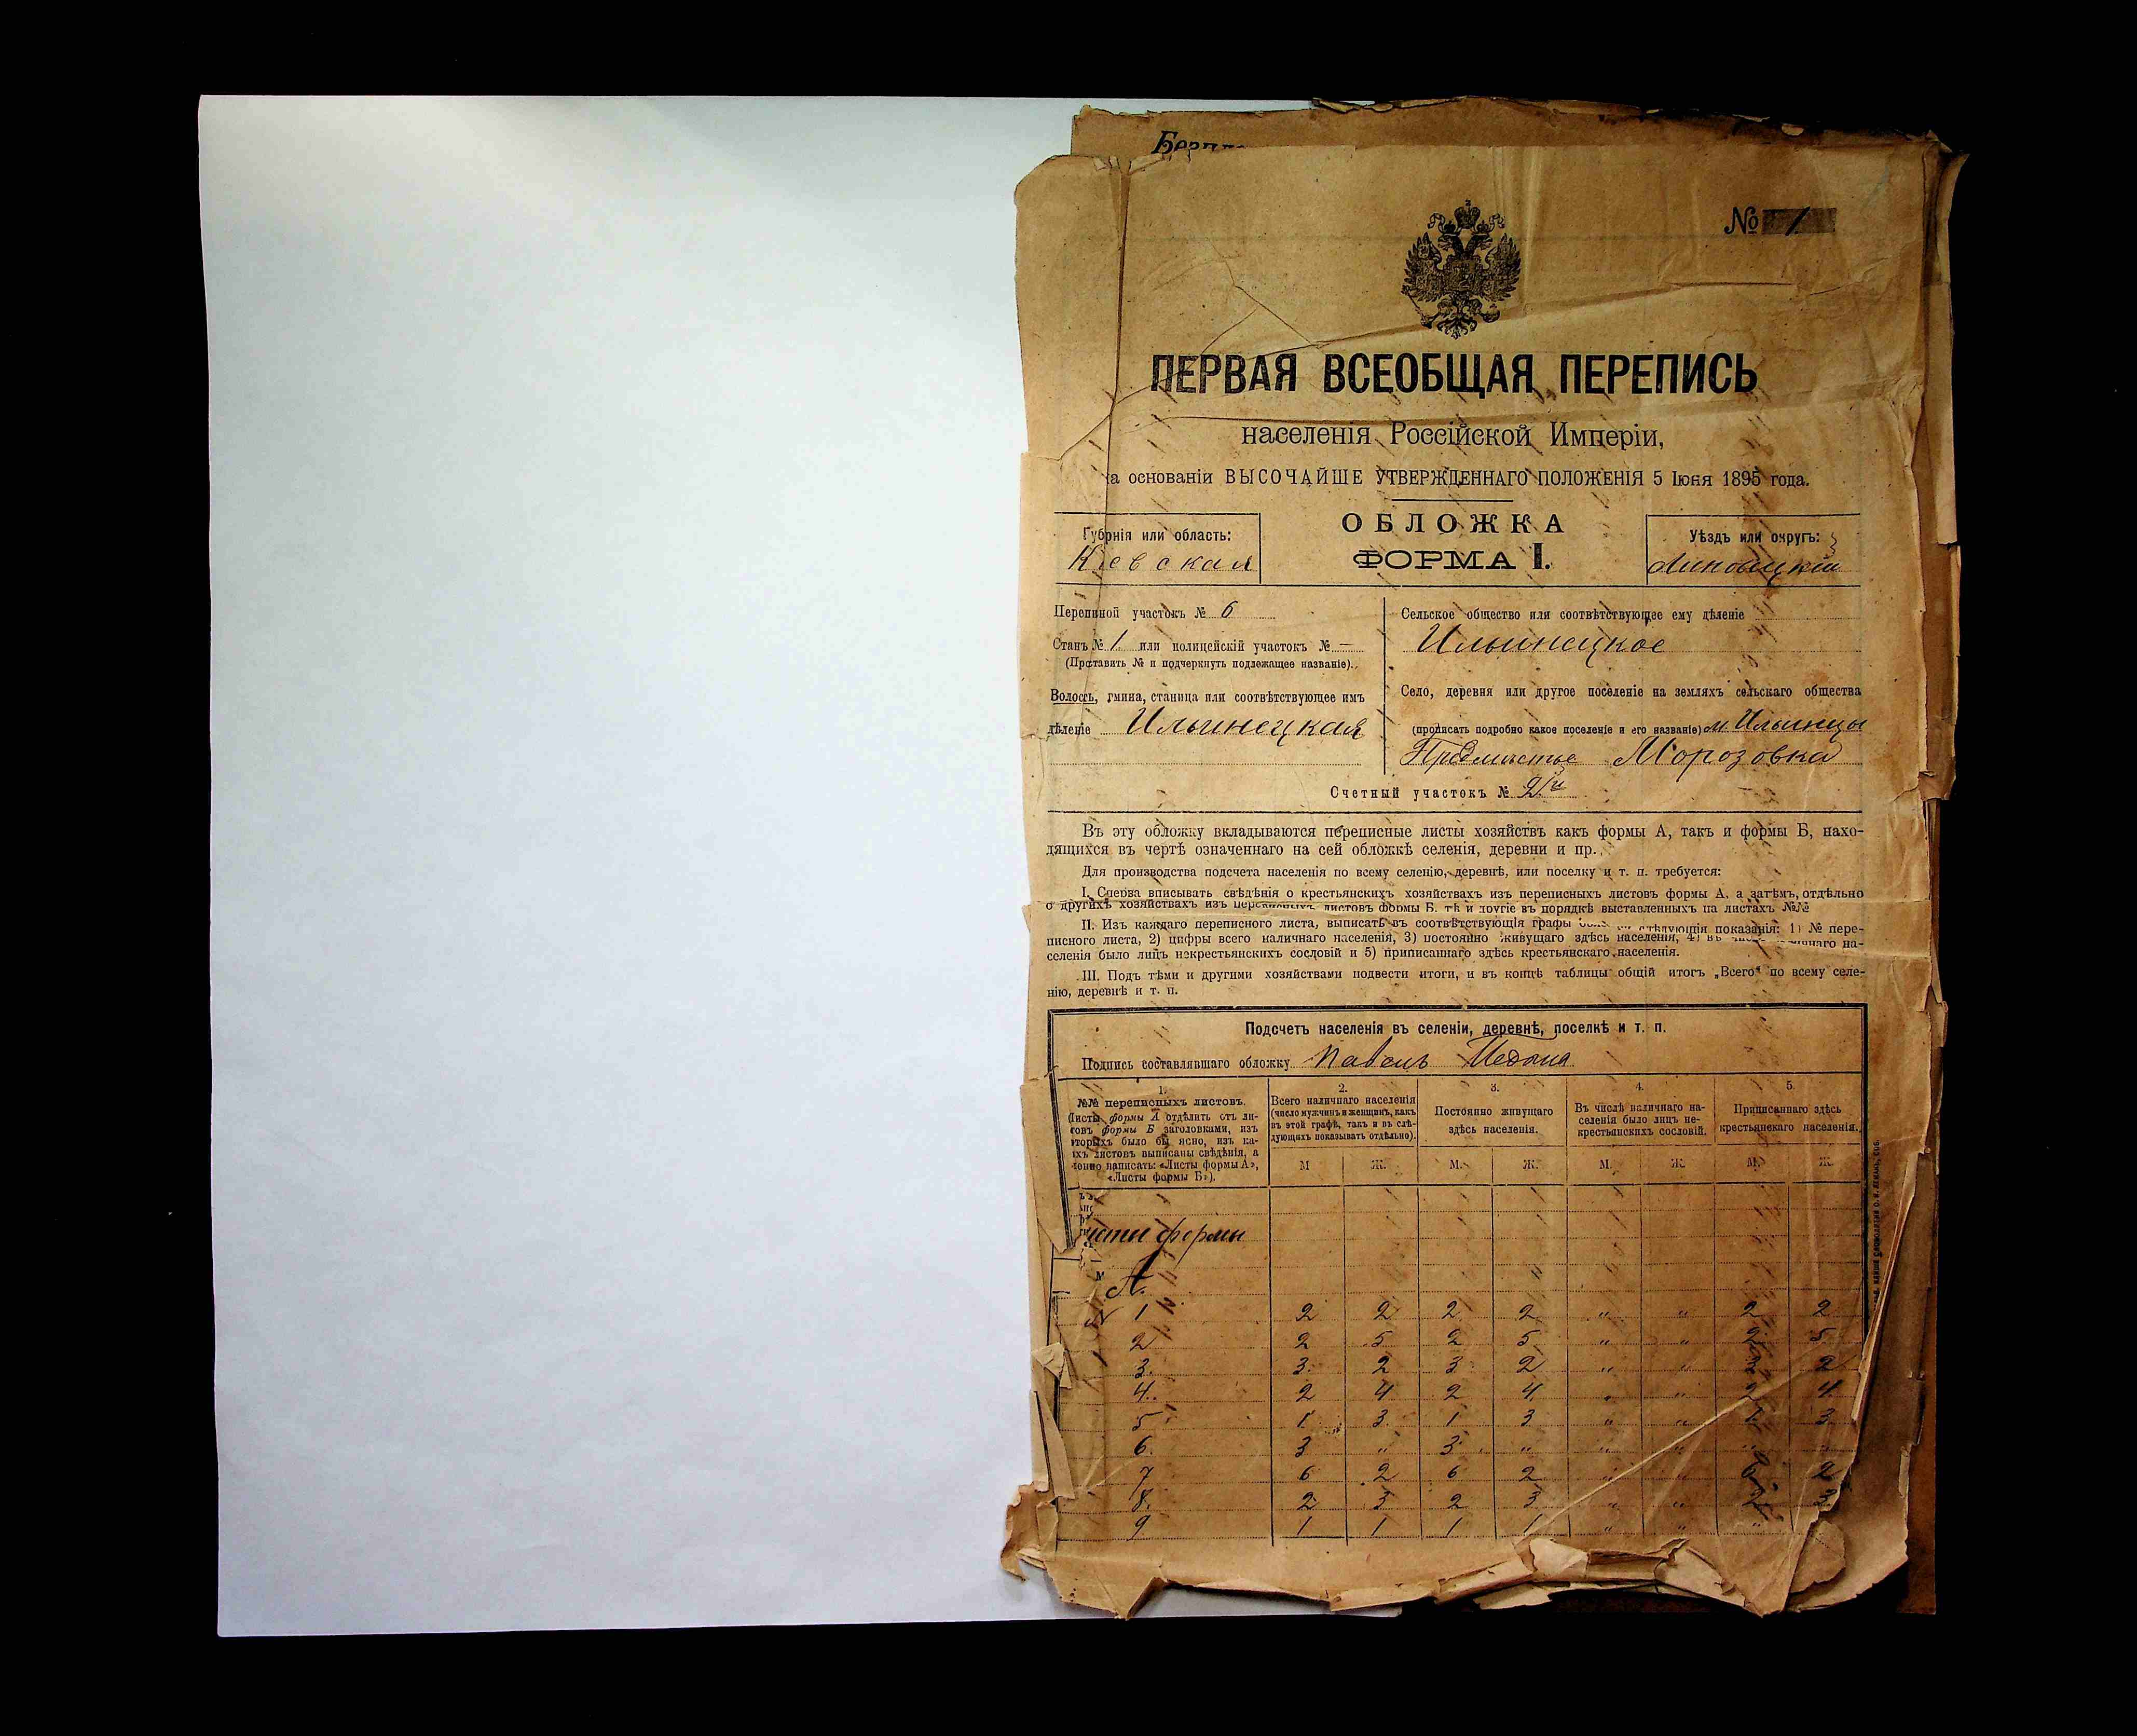 № 1
ПЕРВАЯ ВСЕОБЩАЯ ПЕРЕПИСЬ
населенія Россійской Имперіи,
а основаніи ВЫСОЧАЙШЕ УТВЕРЖДЕННАГО ПОЛОЖЕНІЯ 5 Іюня 1895 года.
ОБЛОЖКА
ФОРМА I.
Губернія или область:
Кіевская
Уѣздъ или округъ:
Липовецкій
Переписной участокъ № 6
Станъ № 1. или полицейскій участокъ № —
(Проставить № и подчеркнуть подлежащее названіе).
Волость, гмина, станица или соотвѣтствующее имъ
дѣленіе Ильинецкая
Сельское общество или соотвѣтствующее ему дѣленіе
Ильинецкое
Село, деревня или другое поселеніе на земляхъ сельскаго общества
(прописать подробно какое поселеніе и его названіе) м. Ильинцы
Предмѣстье Морозовка
Счетный участокъ № 2й
Въ эту обложку вкладываются переписные листы хозяйствъ какъ формы А, такъ и формы Б, нахо-
дящихся въ чертѣ означеннаго на сей обложкѣ селенія, деревни и пр.
Для производства подсчета населенія по всему селенію, деревнѣ, или поселку и т. п. требуется:
I. Сперва вписывать свѣдѣнія о крестьянскихъ хозяйствахъ изъ переписныхъ листовъ формы А, а затѣмъ, отдѣльно
о другихъ хозяйствахъ изъ переписныхъ листовъ формы Б, тѣ и другіе въ порядкѣ выставленныхъ на листахъ №№
II. Изъ каждаго переписного листа, выписать въ соотвѣтствующія графы слѣдующія показанія: 1) № пере-
писного листа, 2) цифры всего наличнаго населенія, 3) постоянно живущаго здѣсь населенія, 4) въ числѣ наличнаго на-
селенія было лицъ некрестьянскихъ сословій и 5) приписаннаго здѣсь крестьянскаго населенія.
III. Подъ тѣми и другими хозяйствами подвести итоги, и въ концѣ таблицы общій итогъ „Всего“ по всему селе-
нію, деревнѣ и т. п.
Подсчетъ населенія въ селеніи, деревнѣ, поселкѣ и т. п.
Подпись составлявшаго обложку Павелъ
1. 2. 3. 4. 5.
№№ переписныхъ листовъ.
(Листы формы А отдѣлить отъ ли-
стовъ формы Б заголовками, изъ
которыхъ было бы ясно, изъ ка-
кихъ листовъ выписаны свѣдѣнія, а
именно написать: «Листы формы А»,
«Листы формы Б»).
Всего наличнаго населенія
(число мужчинъ и женщинъ, какъ
въ этой графѣ, такъ и въ слѣ-
дующихъ показывать отдѣльно).
Постоянно живущаго
здѣсь населенія.
Въ числѣ наличнаго на-
селенія было лицъ не-
крестьянскихъ сословій.
Приписаннаго здѣсь
крестьянскаго населенія.
М Ж. М. Ж. М. Ж. М. Ж.
исты формы
А.
№ 1 2 2 2 2 „ „ 2 2
2 2 5 2 5 „ „ 2 5
3. 3. 2 3 2 „ „ 3 2
4. 2 4 2 4 „ „ 2 4.
5 1 3. 1 3 „ „ 1 3.
6. 3 „ 3 „ „ „ „ „
7 6 2 6 2 „ „ 6 2
8. 2 3 2 3 „ „ 2 3
9 1 1 1 1 „ „ „